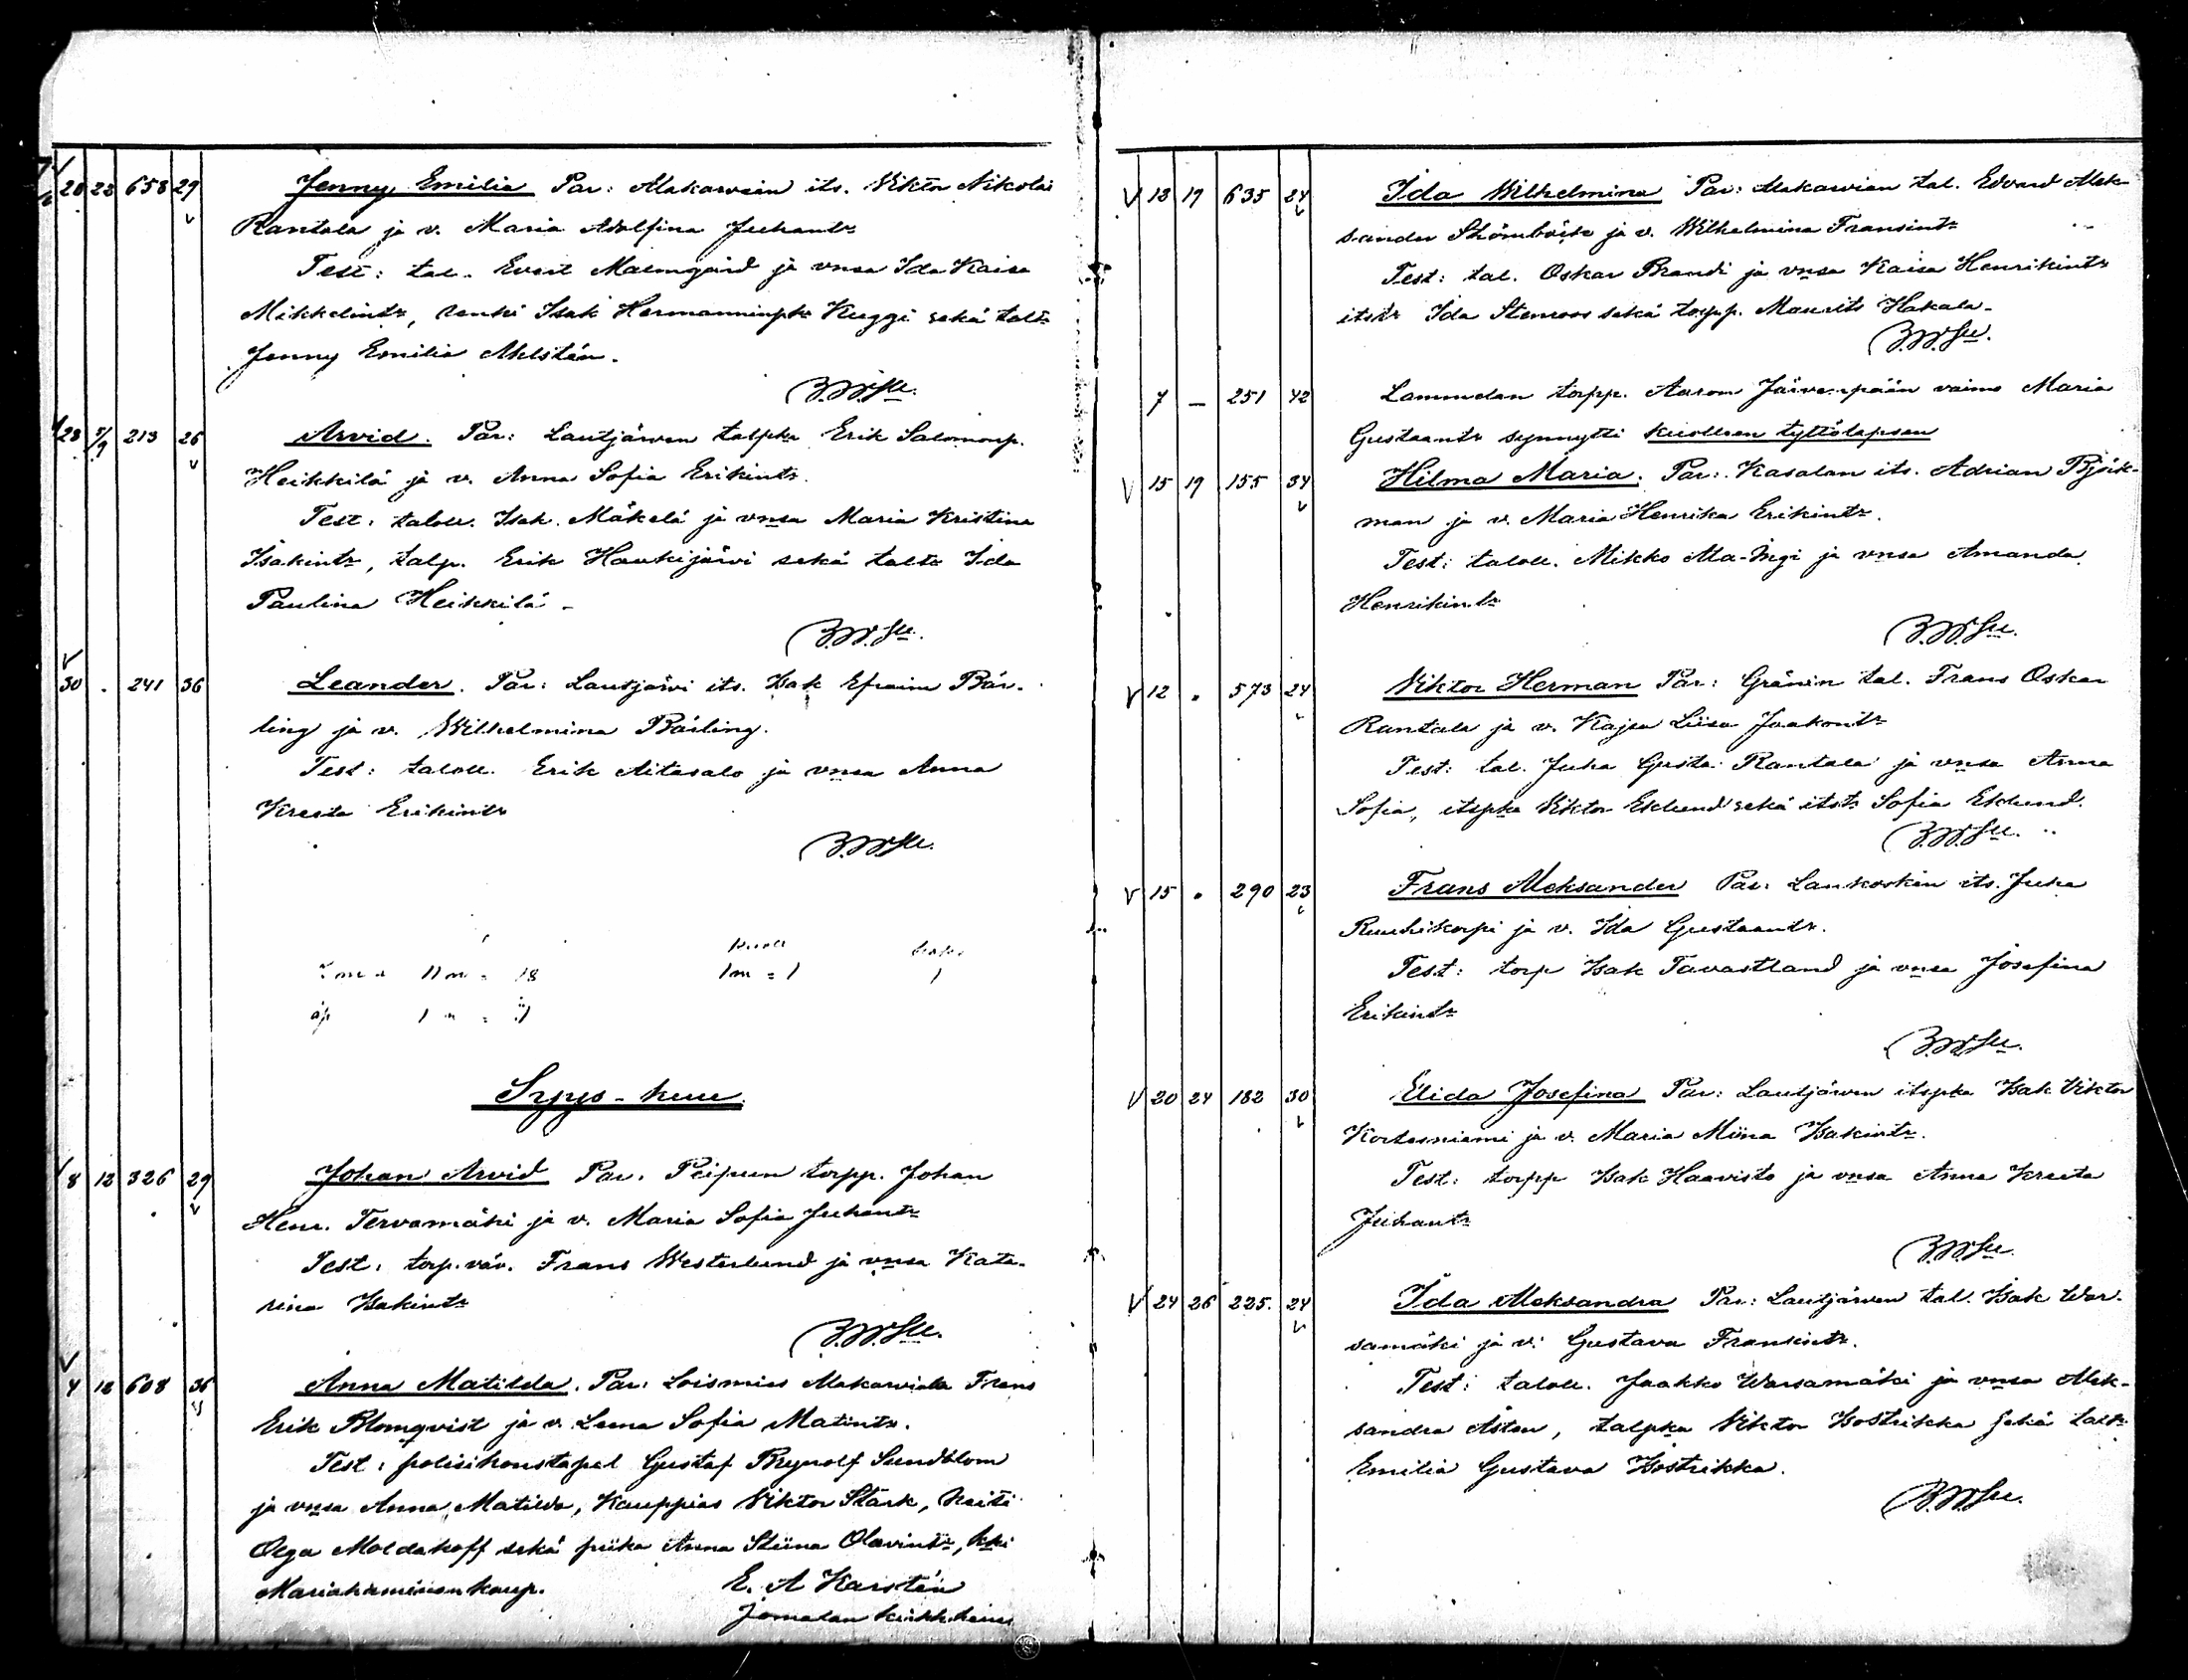 20 23 658 29 Jenny Emilia Par: Makarvian its. Viktor Nikolai
Rantala ja v. Maria Adolfina Juhantr
Test: tal. Evert Malmgård ja vnsa Ida Kaisa
Mikkelintr, renki Isak Hermanninpk Kuggi sekä taltr
Jenny Emilia Ahlstén.
28 5/9 213 26 Arvid. Par: Lautjärven talpka Erik Salomonp.
Heikkilä ja v. Anna Sofia Erikintr.
Test: taloll. Isak Mäkelä ja vnsa Maria Kristina
Isakintr, talp. Erik Haukijärvi sekä taltr Ida
Paulina Heikkilä -
30 . 241 36 Leander. Par: Lautjärvi its. Isak Efraim Bär-
ling ja v. Wilhelmina Bärling.
Test: taloll. Erik Aitasalo ja vnsa Anna
Kreeta Erikintr
11 m = 18 1m = 1 1
äp 1
Syys-kuu.
8 12 326 29 Johan Arvid Par. Peipun torpp. Johan
Henr. Tervamäki ja v. Maria Sofia Juhantr
Test: torp.väv. Frans Westerlund ja vnsa Kata-
rina Isakintr
4 12 608 36 Anna Matilda. Par: Loismies Makarviala Frans
Erik Blomqvist ja v. Leena Sofia Matintr.
Test: polisikonstapel Gustaf Brynolf Sundblom
ja vnsa Anna Matilda, Kauppias Viktor Stark, Neiti
Olga Moldakoff sekä piika Anna Stiina Olavintr, kki
Mariahaminan kaup. E. A Karstén
Jomalan kirkkoherra
V 13 19 635 24 Ida Wilhelmina Par: Makarvian tal. Edvard Alek-
sander Strömbäck ja v. Wilhelmina Fransintr
Test: tal. Oskar Brandi ja vnsa Kaisa Henrikintr
itstr Ida Stenroos sekä torpp. Maurits Hakala-
7 — 251 42 Lammelan torpp. Aaron Järvenpään vaimo Maria
Gustaantr synnytti kuolleen tyttölapsen
V 15 19 155 34 Hilma Maria. Par: Kasalan its. Adrian Björk-
man ja v. Maria Henrika Erikintr.
Test: taloll. Mikko Ala-Ingi ja vnsa Amanda
Henrikintr
V 12 . 573 24 Viktor Herman Par: Gränin tal. Frans Oskar
Rantala ja v. Kajsa Liisa Jaakontr
Test: tal. Juha Gusta Rantala ja vnsa Anna
Sofia, itspka Viktor Eklund sekä itstr Sofia Eklund.
V 15 . 290 23 Frans Aleksander Par: Lankoskin its. Juha
Ruuhikorpi ja v. Ida Gustaantr.
Test: torp Isak Tavastland ja vnsa Josefina
Erikintr
V 20 24 182 30 Elida Josefina Par: Lautjärven itspka Isak Viktor
Kortesniemi ja v. Maria Miina Isakintr.
Test: torpp Isak Haavisto ja vnsa Anna Kreeta
Juhantr
V 24 26 225. 24 Ida Aleksandra Par: Lautjärven tal. Isak War-
samäki ja v. Gustava Fransintr.
Test: taloll. Jaakko Warsamäki ja vnsa Alek-
sandra Aston, talpka Viktor Isostrikka sekä taltr
Emilia Gustava Isostrikka.